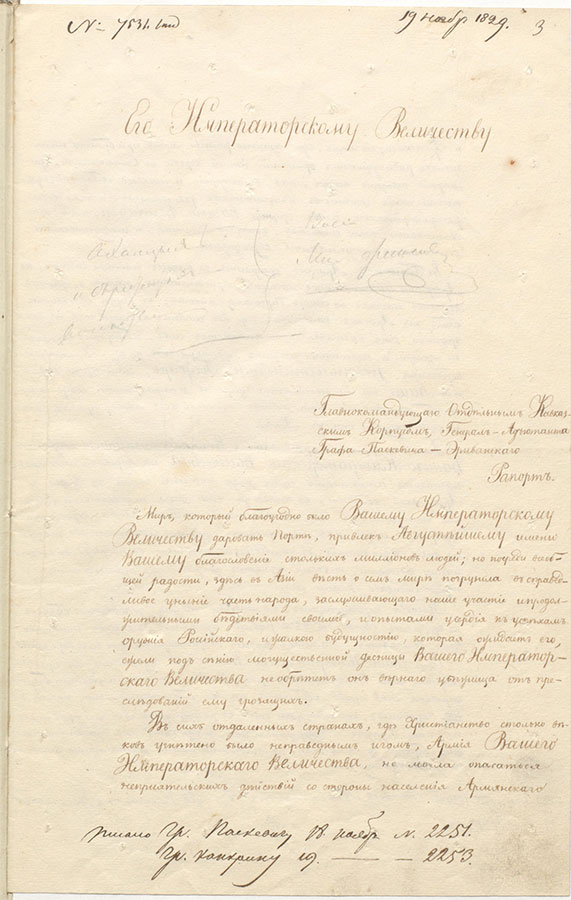 № 7531.
19 ноябр 1829. 3
Его Императорскому Величеству
Главнокомандующаго Отдѣльнымъ Кавказ-
скимъ Корпусомъ, Генералъ-Адъютанта
Графа Паскевича-Эриванскаго
Рапортъ.
Миръ, который благоугодно было Вашему Императорскому
Величеству даровать Портѣ, привлекъ Августѣйшему имени
Вашему благословенія столькихъ милліоновъ людей; но посреди
щей радости, здѣсь въ Азіи вѣсть о семъ мирѣ погрузила въ справед-
ливое уныніе часть народа, заслуживающаго наше участіе и продол-
жительными бѣдствіями своими, и опытами усердія къ успѣхамъ
оружія Россійскаго, и жалкою будущностію, которая ожидаетъ его,
ежели подъ сѣнію могущественной десницы Вашего Император-
скаго Величества не обрѣтетъ онъ вѣрнаго убѣжища отъ пре-
слѣдованій ему грозящихъ.
Въ сихъ отдаленныхъ странахъ, гдѣ Христіанство столько вѣ-
ковъ угнѣтено было неправеднымъ игомъ, Армія Вашего
Императорскаго Величества, не могла опасаться
непріятельскихъ дѣйствій со стороны населенія Армянскаго
писано Гр. Паскевичу 18. ноябр. №. 2251.
Гр. Канкрину 19. — — 2253.